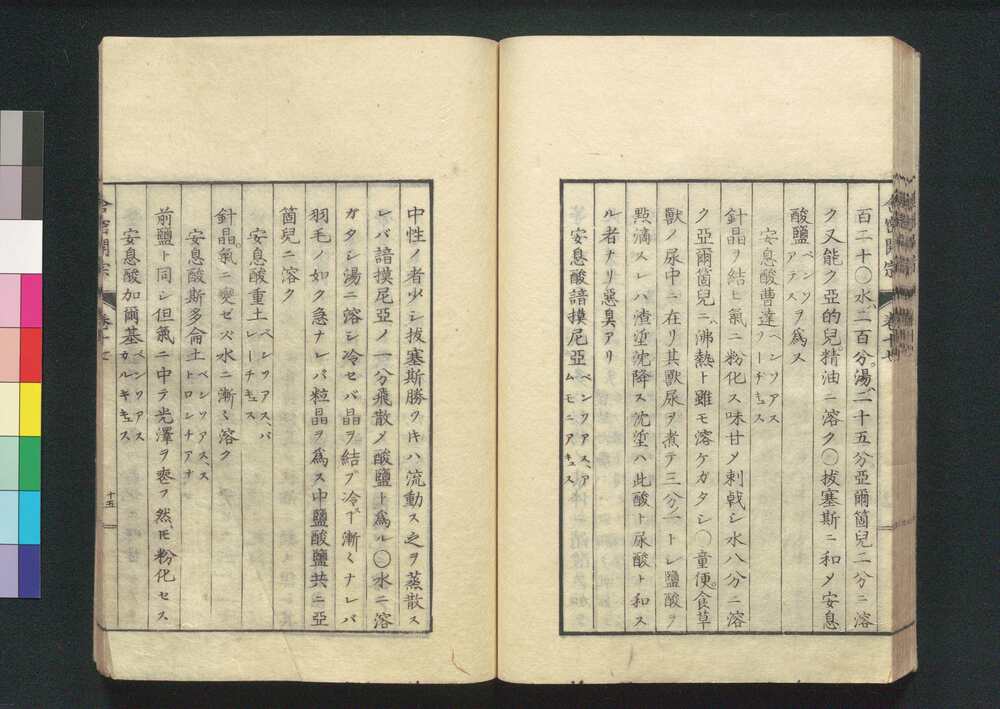 百二十〇水、二百分。湯、二十五分亞爾箇兒二分ニ溶
ク又能ク亞的兒精油ニ溶ク〇拔塞斯ニ和メ安息
酸鹽ベンソアテスヲ爲ス
安息酸曹達ベンソアス、ソーヂキュス
針晶ヲ結ヒ氣ニ粉化ス味甘メ刺戟シ水八分ニ溶
ク亞爾箇兒ニ、沸熱ト雖モ溶ケガタシ〇童便。食草
獸ノ尿中ニ在リ其獸尿ヲ煮テ三分ノ一トレ鹽酸ヲ
㸃滴スレハ渣滓沈降ス沈滓ハ此酸ト尿酸ト和ス
ル者ナリ惡臭アリ
安息酸諳摸尼亞ベンソアス、アムモニアキュス
中性ノ者少シ拔塞斯勝ツキハ流動ス之ヲ蒸散ス
レバ諳摸尼亞ノ一分飛散メ酸鹽ト爲ル〇水ニ溶
ガタシ湯ニ溶シ冷セバ晶ヲ結ブ冷下漸くナレバ
羽毛ノ如ク急ナレバ粒晶ヲ爲ス中鹽酸鹽共ニ亞
箇兒ニ溶ク
安息酸重土ベンソアス、バレーチキュス
針晶。氣ニ變ゼズ水ニ漸く溶ク
安息酸斯多侖土ベンソアス、ストロンチアナ
前鹽ト同シ但氣ニ中テ光澤ヲ喪フ然ヒ粉化セス
安息酸加爾基ベンソアスカルキキュス
舍密開宗
卷十七
十五
舍密開宗
卷十七